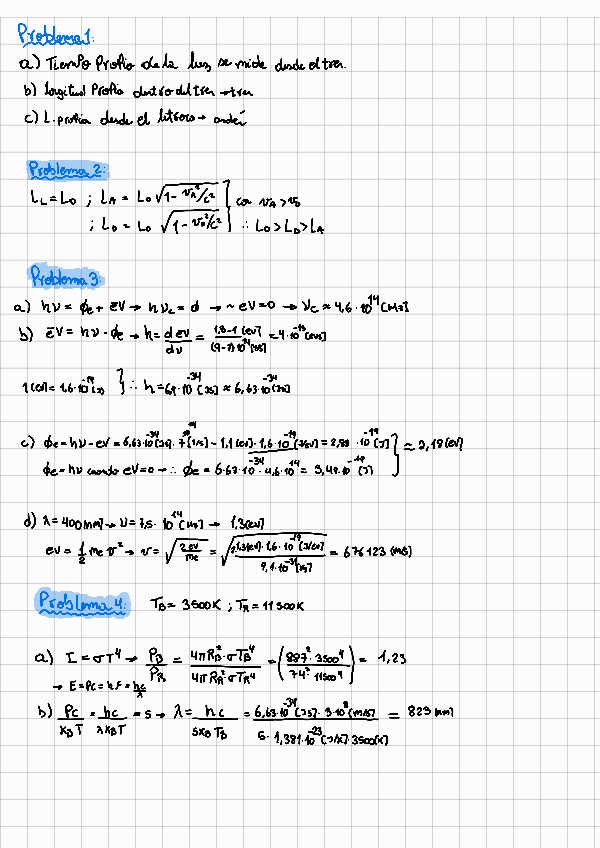 Problema 1:
a) Tiempo Propio de la luz se mide desde el tren.
b) longitud Propia dentro del tren → tren
c) L. propia desde el letrero → andén
Problema 2:
L_L = L_0 ; L_A = L_0 √(1 - v_A²/c²) } con v_A > v_D
; L_D = L_0 √(1 - v_D²/c²) } ∴ L_0 > L_D > L_A
Problema 3
a) hν = ϕe + eV → hν_c = ϕ → ~ eV = 0 → ν_c ≈ 4,6 · 10^14 [Hz]
b) eV = hν - ϕe → h = d eV / dν = 1,8-1 [eV] / (9-7)10^14 [1/s] = 4 · 10^-15 [eVs]
1 [eV] = 1,6 · 10^-19 [J] } ∴ h = 6,4 · 10^-34 [Js] ≈ 6,63 · 10^-34 [Js]
c) ϕe = hν - eV = 6,63 · 10^-34 [Js] · 7 [1/s] - 1,1 [eV] · 1,6 · 10^-19 [J/eV] = 2,88 · 10^-19 [J] } ≈ 2,18 [eV]
ϕe = hν cuando eV = 0 → ∴ ϕe = 6,63 · 10^-34 · 4,6 · 10^14 = 3,49 · 10^-19 [J]
d) λ = 400 [nm] → ν = 7,5 · 10^14 [Hz] → 1,3 [eV]
eV = 1/2 me v² → v = √(2 eV / me) = √(2 · 1,3 [eV] · 1,6 · 10^-19 [J/eV] / 9,1 · 10^-31 [kg]) = 676123 [m/s]
Problema 4: T_B = 3500K ; T_R = 11500K
a) I = σT⁴ → P_B / P_R = 4πR_B² · σT_B⁴ / 4πR_R² σT_R⁴ = (887² · 3500⁴ / 74² 11500⁴) = 1,23
→ E = Pc = hF = hc/λ
b) Pc / K_B T = hc / λK_B T = 5 → λ = hc / 5K_B T_B = 6,63 · 10^-34 [Js] · 3 · 10^8 [m/s] / 5 · 1,381 · 10^-23 [J/K] · 3500 [K] = 823 [nm]